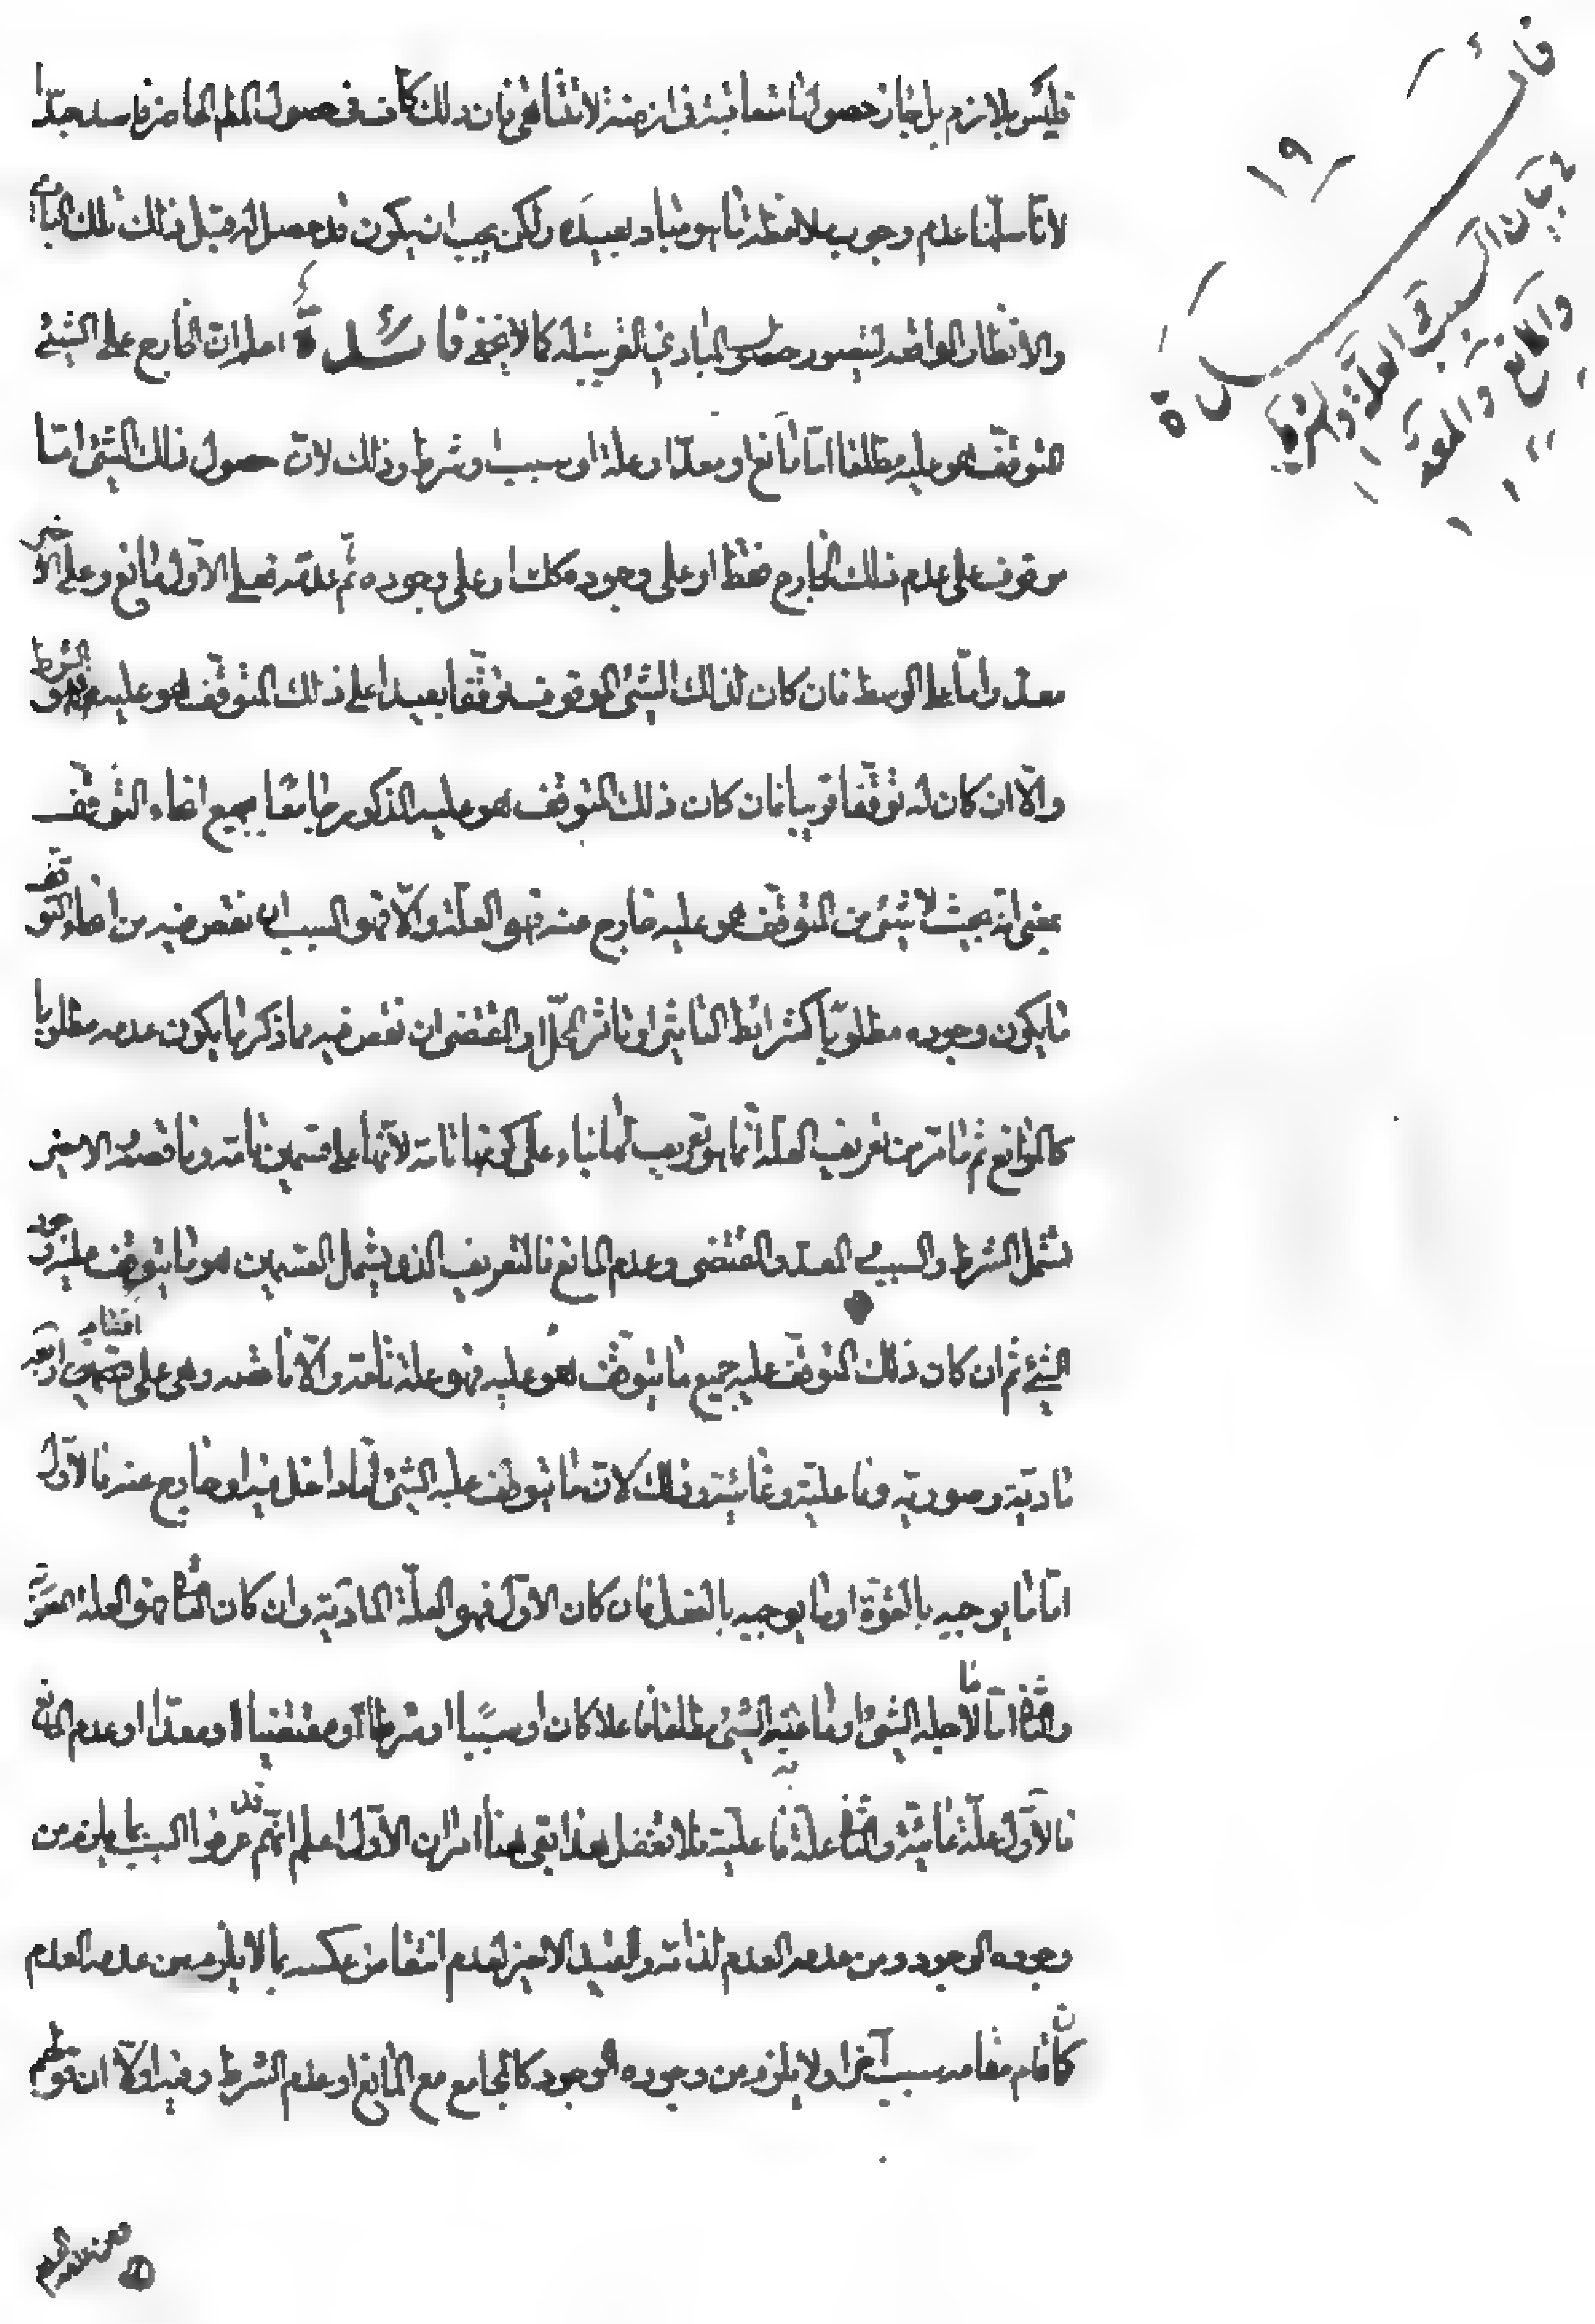 فليس بلازم بل جاز حصولنا متعاقبة فى ازمنة لا تتناهى فان ذلك كاف فى حصول العلم الحاضر فاسد جدّا
لانّا سلّمنا عدم وجوب ملاحظة ما هو مباد بعيدة ولكن يجب ان يكون قد حصل له قبل ذلك تلك المبادى
والانظار الواضحة ليتصور حصول المبادى القريبة له كما لا يخفى فائدة اعلم ان الخارج على الشيئ
المتوقّف هو عليه مطلقا امّا مانع او معدّ او علة او سبب او شرط وذلك لانّ حصول ذلك الشيئ امّا
موقوف على عدم ذلك الخارج فقط او على وجوده كك او على وجوده ثمّ عدمه فعلى الاوّل مانع وعلى الآخر
معدّ وامّا على الوسط فان كان لذلك الشيئ الموقوف توقّفا بعيدا على ذلك المتوقّف هو عليه فهو الشرط
والّا ان كان له توقّفا قريبا فان كان ذلك المتوقّف هو عليه المذكور جامعا بجميع انحاء التوقّف
بمعنى انه بحيث لا شيئ من المتوقّف هو عليه خارج عنه فهو العلّة والّا فهو السبب ان نقص فيه من انحاء التوقّف
ما يكون وجوده مطلوبا كشرائط التاثير او تاثر المحلّ او المقتضى ان نقص فيه مما ذكر ما يكون عدمه مطلوبا
كالموانع ثم ما مرّ من تعريف العلّة انّما هو تعريف لها بناء على كونها تامّة لانّها على قسمين تامّة وناقصة والاخير
تشمل الشرط والسبب و المعدّ والمقتضى وعدم المانع فالتعريف الذى يشمل القسمين هو ما يتوقف عليه وجود
الشيئ ثم ان كان ذلك المتوقّف عليه جميع ما يتوقّف هو عليه فهو علة تامّة والّا ناقصة وهى على اقسام اربعة
ماديّة وصوريّة وفاعليّة وغائيّة وذلك لانّ ما يتوقف عليه الشيئ امّا داخل فيه او خارج عنه فالاوّل
امّا ما يوجبه بالقوّة او ما يوجبه بالفعل فان كان الاوّل فهو العلّة المادّيّة وان كان الثانى فهو العلة الصوريّة
والثانى امّا ما لاجله الشيئ او ما به الشيئ مطلقا فاعلا كان او سببا او شرطا او مقتضيا او معدّا او عدم المانع
فالاوّل علّة غائيّة والثانى علة فاعليّة فلا تغفل هذا بقى هنا امران الاوّل اعلم انّهم قد عرفوا السبب بما يلزم من
وجوده الوجود ومن عدمه العدم لذاته والقيد الاخير لعدم انتقاض عكسه بما لا يلزم من عدمه العدم
كان قام مقامه سبب آخر او لا يلزم من وجوده الوجود كالمجامع مع المانع او عدم الشرط وفيه اولا ان قولهم
فائدة
١٩
فى بيان السبب والعلة والشرط
والمانع والمعدّ